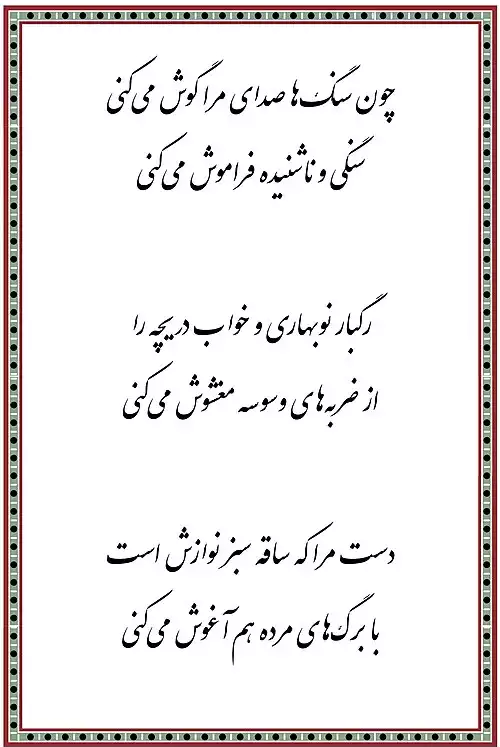 چون سنگ‌ها صدای مرا گوش می‌کنی
سنگی و ناشنیده فراموش می‌کنی
رگبار نوبهاری و خواب دریچه را
از ضربه‌های وسوسه مغشوش می‌کنی
دست مرا که ساقه سبز نوازش است
با برگ‌های مرده هم آغوش می‌کنی